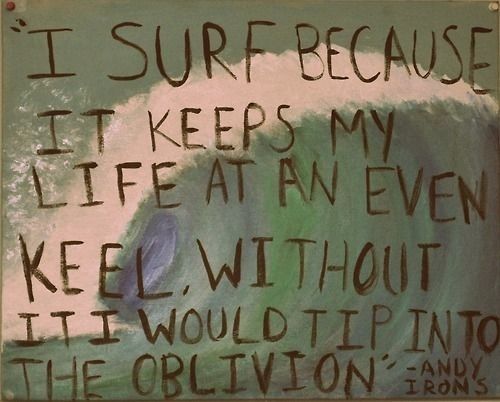 "I SURF BECAUSE
IT KEEPS MY
LIFE AT AN EVEN
KEEL. WITHOUT
IT I WOULD TIP INTO
THE OBLIVION" -ANDY
IRONS